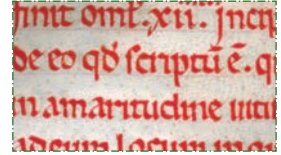 finit omł. xii. incip
de eo qď scriptū ē. q
in amaritudine
ad eum locum in